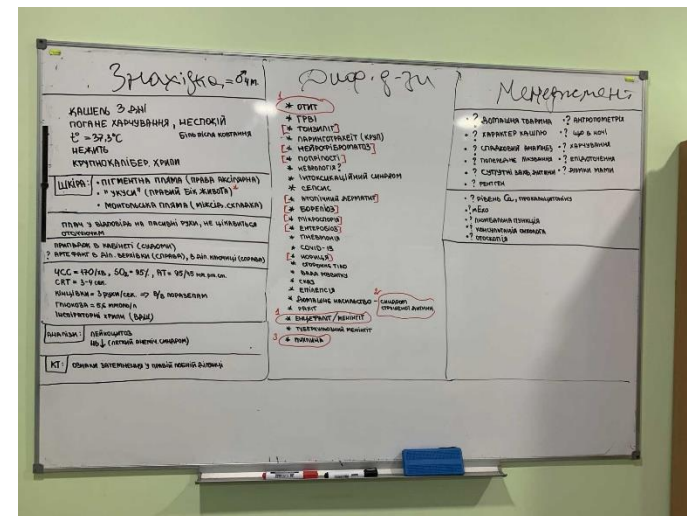 Знахідка = ♂ 4 m.
КАШЕЛЬ 3 ДНІ
ПОГАНЕ ХАРЧУВАННЯ, НЕСПОКІЙ
t° = 37,3°C Біль після ковтання
НЕЖИТЬ
КРУПНОКАЛІБЕР. ХРИПИ
ШКІРА: • ПІГМЕНТНА ПЛЯМА (ПРАВА АКСІЛЯРНА)
• "УКУСИ" (ПРАВИЙ БІК ЖИВОТА)
• МОНГОЛЬСЬКА ПЛЯМА (МІЖСІД. СКЛАДКА)
ПЛАЧ У ВІДПОВІДЬ НА ПАСИВНІ РУХИ, НЕ ЦІКАВИТЬСЯ
ОТОЧУЮЧИМ
ПРИПАДОК В КАБІНЕТІ (СУДОМИ)
? АРТЕФАКТ В ДІЛ. ВЕРХІВКИ (СПРАВА), В ДІЛ. КЛЮЧИЦІ (СПРАВА)
ЧСС = 170/хв, SO₂ = 95%, АТ = 95/45 мм.рт.ст.
CRT = 3-4 сек.
КІНЦІВКИ = 3 рухи/сек. =>
ГЛЮКОЗА = 5,6 ммоль/л
ІНСПІРАТОРНІ ХРИПИ (ВДШ)
АНАЛІЗИ: ЛЕЙКОЦИТОЗ
Hb↓ (ЛЕГКИЙ АНЕМІЧ. СИНДРОМ)
КТ: ОЗНАКИ ЗАТЕМНЕННЯ У ПРАВІЙ ЛОБНІЙ ДІЛЯНЦІ
Диф. д-зи
* ОТИТ
* ГРВІ
[* ТОНЗИЛІТ]
* ЛАРИНГОТРАХЕЇТ (КРУП)
[* НЕЙРОФІБРОМАТОЗ]
[* ПОПРІЛОСТІ]
* НЕВРОЛОГІЯ?
* ІНТОКСИКАЦІЙНИЙ СИНДРОМ
* СЕПСИС
[* АТОПІЧНИЙ ДЕРМАТИТ]
[* БОРЕЛІОЗ]
[* МІКРОСПОРІЯ]
[* ЕНТЕРОБІОЗ]
* ПНЕВМОНІЯ
* COVID-19
[* НОРИЦЯ]
* СТОРОННЄ ТІЛО
* ВАДА РОЗВИТКУ
* СКАЗ
* ЕПІЛЕПСІЯ
* ДОМАШНЄ НАСИЛЬСТВО - 2 СИНДРОМ
СТРУШЕНОЇ ДИТИНИ
* РАХІТ
1 * ЕНЦЕФАЛІТ / МЕНІНГІТ
* ТУБЕРКУЛЬОЗНИЙ МЕНІНГІТ
3 * ПУХЛИНА
Менеджмент
• ? ДОМАШНЯ ТВАРИНА • ? АНТРОПОМЕТРІЯ
• ? ХАРАКТЕР КАШЛЮ • ? ЩО В НОЧІ
• ? СПАДКОВИЙ АНАМНЕЗ • ? ХАРЧУВАННЯ
• ? ПОПЕРЕДНЄ ЛІКУВАННЯ
• ? СУПУТНІ ЗАХВ. ДИТИНИ
• ? РЕНТГЕН
• ? РІВЕНЬ Ca, ПРОКАЛЬЦИТОНІНУ
• ? ЛЮМБАЛЬНА ПУНКЦІЯ
• ? КОНСУЛЬТАЦІЯ ОНКОЛОГА
• ? ОТОСКОПІЯ